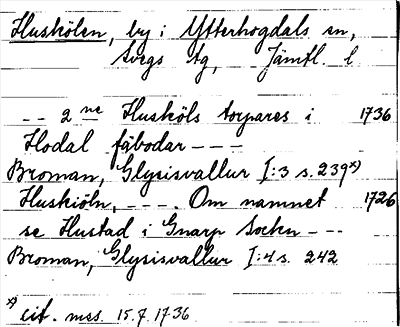 Huskölen, by i Ytterhogdals sn,
Svegs tg, Jämtl. l
-- 2 ne Husköls torpares i 1736
Hodal fäbodar ---
Broman, Glysisvallur I:3 s. 239x)
Huskiöln, ---. Om namnet 1726
se Hustad i Gnarp Socken ---
Broman, Glysisvallur I:4 s. 242
x) cit. mss. 15.7.1736